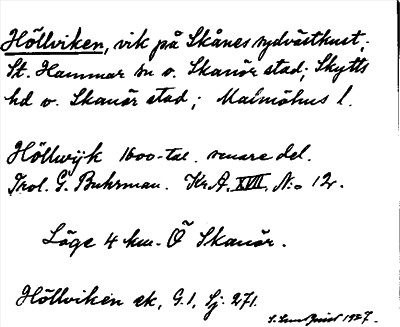 Höllviken, vik på Skånes sydvästkust,
St. Hammar sn o. Skanör stad; Skytts
hd o. Skanör stad; Malmöhus l.
Höllwijk 1600-tal. senare del.
Trol. G. Buhrman. Kr.A. XVII, N:o 12.
Läge 4 km. Ö Skanör.
Höllviken ek, G.1, Sj. 271.
1927.